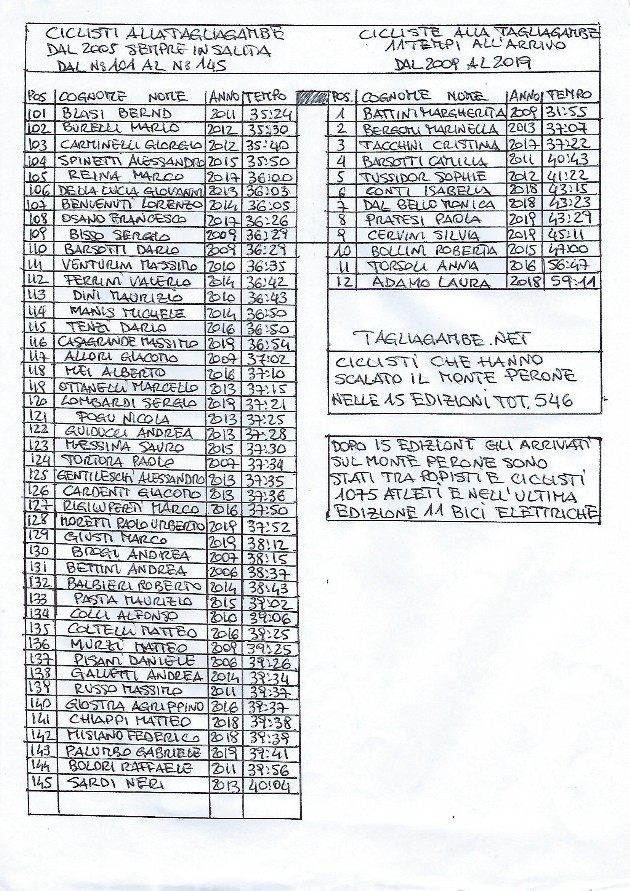 CICLISTI ALLA TAGLIAGAMBE
DAL 2005 SEMPRE IN SALITA
DAL N: 101 AL N: 145
POS COGNOME NOME ANNO TEMPO
101 BLASI BERND 2011 35:24
102 BURELLI MARIO 2012 35:30
103 CARMINELLI GIORGIO 2012 35:40
104 SPINETTI ALESSANDRO 2015 35:50
105 REINA MARCO 2017 36:00
106 DELLA LUCIA GIOVANNI 2013 36:03
107 BENVENUTI LORENZO 2014 36:05
108 OSANO FRANCESCO 2017 36:26
109 BISSO SERGIO 2009 36:29
110 BARSOTTI DARIO 2009 36:29
111 VENTURINI MASSIMO 2010 36:35
112 FERRINI VALERIO 2014 36:42
113 DINI MAURIZIO 2010 36:43
114 MANIS MICHELE 2014 36:50
115 TENZI DARIO 2016 36:50
116 CASAGRANDE MASSIMO 2019 36:54
117 ALLORI GIACOMO 2007 37:02
118 MEI ALBERTO 2016 37:10
119 OTTANELLI MARCELLO 2013 37:15
120 LOMBARDI SERGIO 2019 37:21
121 POGU NICOLA 2013 37:25
122 GUIDUCCI ANDREA 2013 37:28
123 MESSINA SAURO 2015 37:30
124 TORTORA PAOLO 2007 37:34
125 GENTILESCHI ALESSANDRO 2013 37:35
126 CARDENTI GIACOMO 2013 37:36
127 RIGILUPERTI MARCO 2016 37:50
128 MORETTI PAOLO URBERTO 2019 37:52
129 GIUSTI MARCO 2019 38:12
130 BROGI ANDREA 2007 38:15
131 BETTINI ANDREA 2006 38:37
132 BALBIERI ROBERTO 2014 38:43
133 PASTA MAURIZIO 2015 39:02
134 COLLI ALFONSO 2010 39:06
135 COLTELLI MATTEO 2016 39:25
136 MURZI MATTEO 2009 39:25
137 PISANI DANIELE 2006 39:26
138 GALLETTI ANDREA 2014 39:34
139 RUSSO MASSIMO 2011 39:37
140 GIOSTRA AGRIPPINO 2016 39:37
141 CHIAPPI MATTEO 2018 39:38
142 MISIANO FEDERICO 2018 39:39
143 PALUMBO GABRIELE 2019 39:41
144 BOLDRI RAFFAELE 2011 39:56
145 SARDI NERI 2013 40:04
CICLISTE ALLA TAGLIAGAMBE
11 TEMPI ALL'ARRIVO
DAL 2009 AL 2019
POS. COGNOME NOME ANNO TEMPO
1 BATTINI MARGHERITA 2009 31:55
2 BERGOMI MARINELLA 2013 37:07
3 TACCHINI CRISTINA 2014 37:22
4 BARSOTTI CAMILLA 2011 40:43
5 TUSSIDOR SOPHIE 2012 41:22
6 CONTI ISABELLA 2018 43:15
7 DAL BELLO MONICA 2018 43:23
8 PRATESI PAOLA 2019 43:29
9 CERVINI SILVIA 2019 45:11
10 BOLLINI ROBERTA 2015 47:00
11 TORSOLI ANNA 2016 56:47
12 ADAMO LAURA 2018 59:11
TAGLIAGAMBE.NET
CICLISTI CHE HANNO
SCALATO IL MONTE PERONE
NELLE 15 EDIZIONI TOT. 546
DOPO 15 EDIZIONI GLI ARRIVATI
SUL MONTE PERONE SONO
STATI TRA PODISTI E CICLISTI
1075 ATLETI E NELL'ULTIMA
EDIZIONE 11 BICI ELETTRICHE